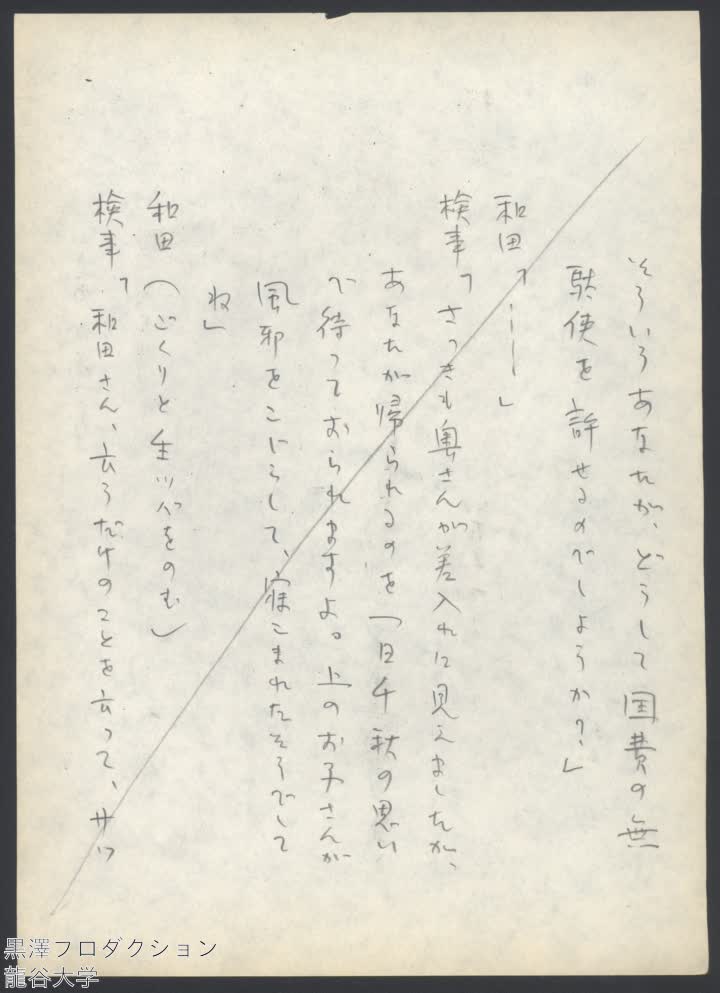 そういうあなたが、どうして国費の無
駄使を許せるのでしようか?」
和田「―――」
検事「さつきも奥さんが差入れに見えましたが、
あなたが帰られるのを一日千秋の思い
で待つておられますよ。上のお子さんが
風邪をこじらして、寝こまれたそうでして
ね」
和田(ごくりと生ツバをのむ)
検事「和田さん、云うだけのことを云つて、サツ
黒澤プロダクション
龍谷大学